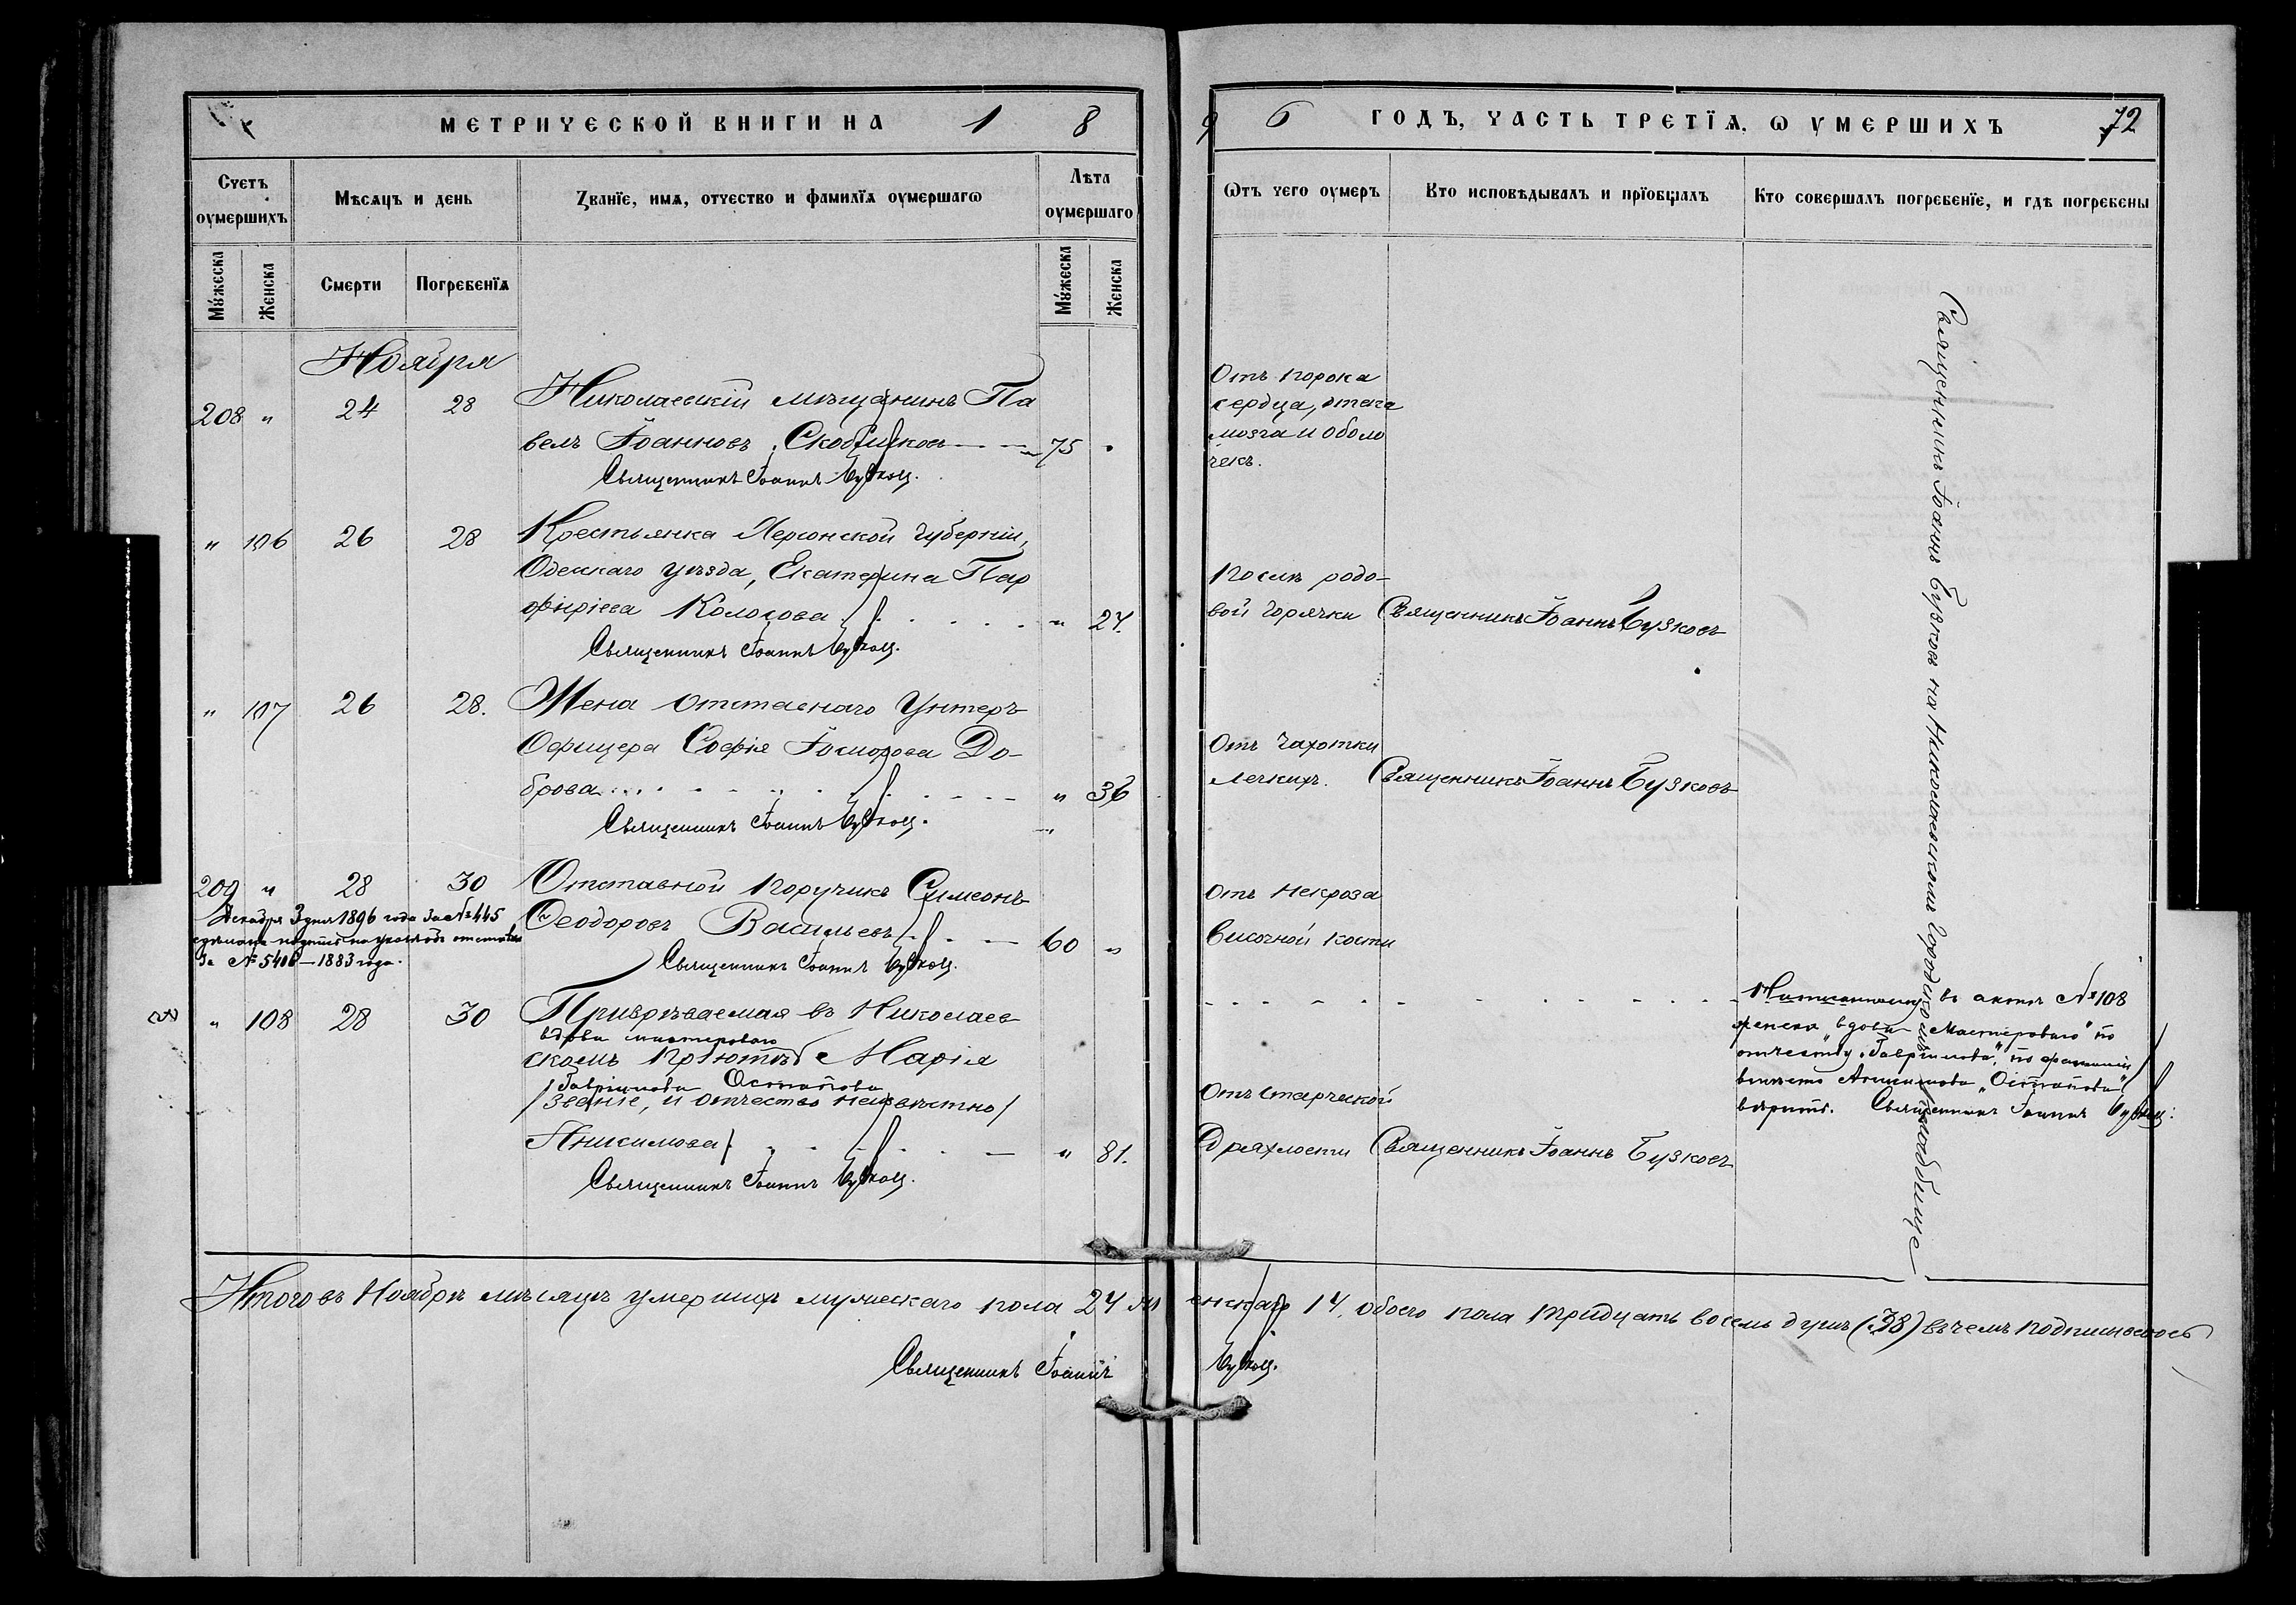 МЕТРИЧЕСКОЙ КНИГИ НА 1 8
Счетъ оумершихъ
Мѣсяцъ и день
Званїе, имя, отчество и фамилїя оумершагѡ
Лѣта оумершаго
Мужеска
Женска
Смерти
Погребенїя
Мужеска
Женска
Ноября
208 " 24 28 Николаевскій мѣщанинъ Па
велъ Іоанновъ Скобликовъ 75
Священникъ Іоаннъ Бузковъ.
" 106 26 28 Крестьянка Херсонской губерніи,
Одесскаго уѣзда, Екатерина Пар
фиріева Колосова " 27.
Священникъ Іоаннъ Бузковъ.
" 107 26 28. Жена отставнаго Унтеръ
Офицера Софія Ѳомы До-
брова " 36
Священникъ Іоаннъ Бузковъ.
209 " 28 30 Отставной поручикъ Симеонъ
Ѳеодоровъ Васильевъ 60 "
Декабря 3 дня 1896 года За № 445
сдѣлана надпись на указѣ объ отставкѣ
За № 5406 – 1883 года.
Священникъ Іоаннъ Бузковъ.
" 108 28 30 Призрѣваемая въ Николаев
вдова мастероваго
скомъ пріютѣ Марія
Гавріилова Остапова
/званіе, и отчество неизвѣстно/
Анисимова/ " 81.
Священникъ Іоаннъ Бузковъ.
Итого въ Ноябрѣ мѣсяцѣ умершихъ мужескаго пола 24 ж
Священникъ Іоаннъ
9 6 ГОДЪ, ЧАСТЬ ТРЕТЇЯ, Ѡ УМЕРШИХЪ 72
Ѿтъ чего оумеръ
Кто исповѣдывалъ и прїобщалъ
Кто совершалъ погребенїе, и гдѣ погребены
Отъ порока
сердца, отека
мозга и оболо
чекъ.
Послѣ родо-
вой горячки Священникъ Іоаннъ Бузковъ
Отъ чахотки
легкихъ. Священникъ Іоаннъ Бузковъ
Отъ некроза
височной кости
Отъ старческой
дряхлости Священникъ Іоаннъ Бузковъ
Священникъ Іоаннъ Бузковъ на Николаевскомъ городскомъ кладбищѣ
Написанному въ актѣ № 108
женска „вдова Мастероваго" по
отчеству „Гавріилова", по фамиліи
вмѣсто Анисимова „Остапова"
вѣрить. Священникъ Іоаннъ Бузковъ.
енскаго 14, обоего пола тридцать восемь душъ (38) въ чемъ подписуюсь
Бузковъ.